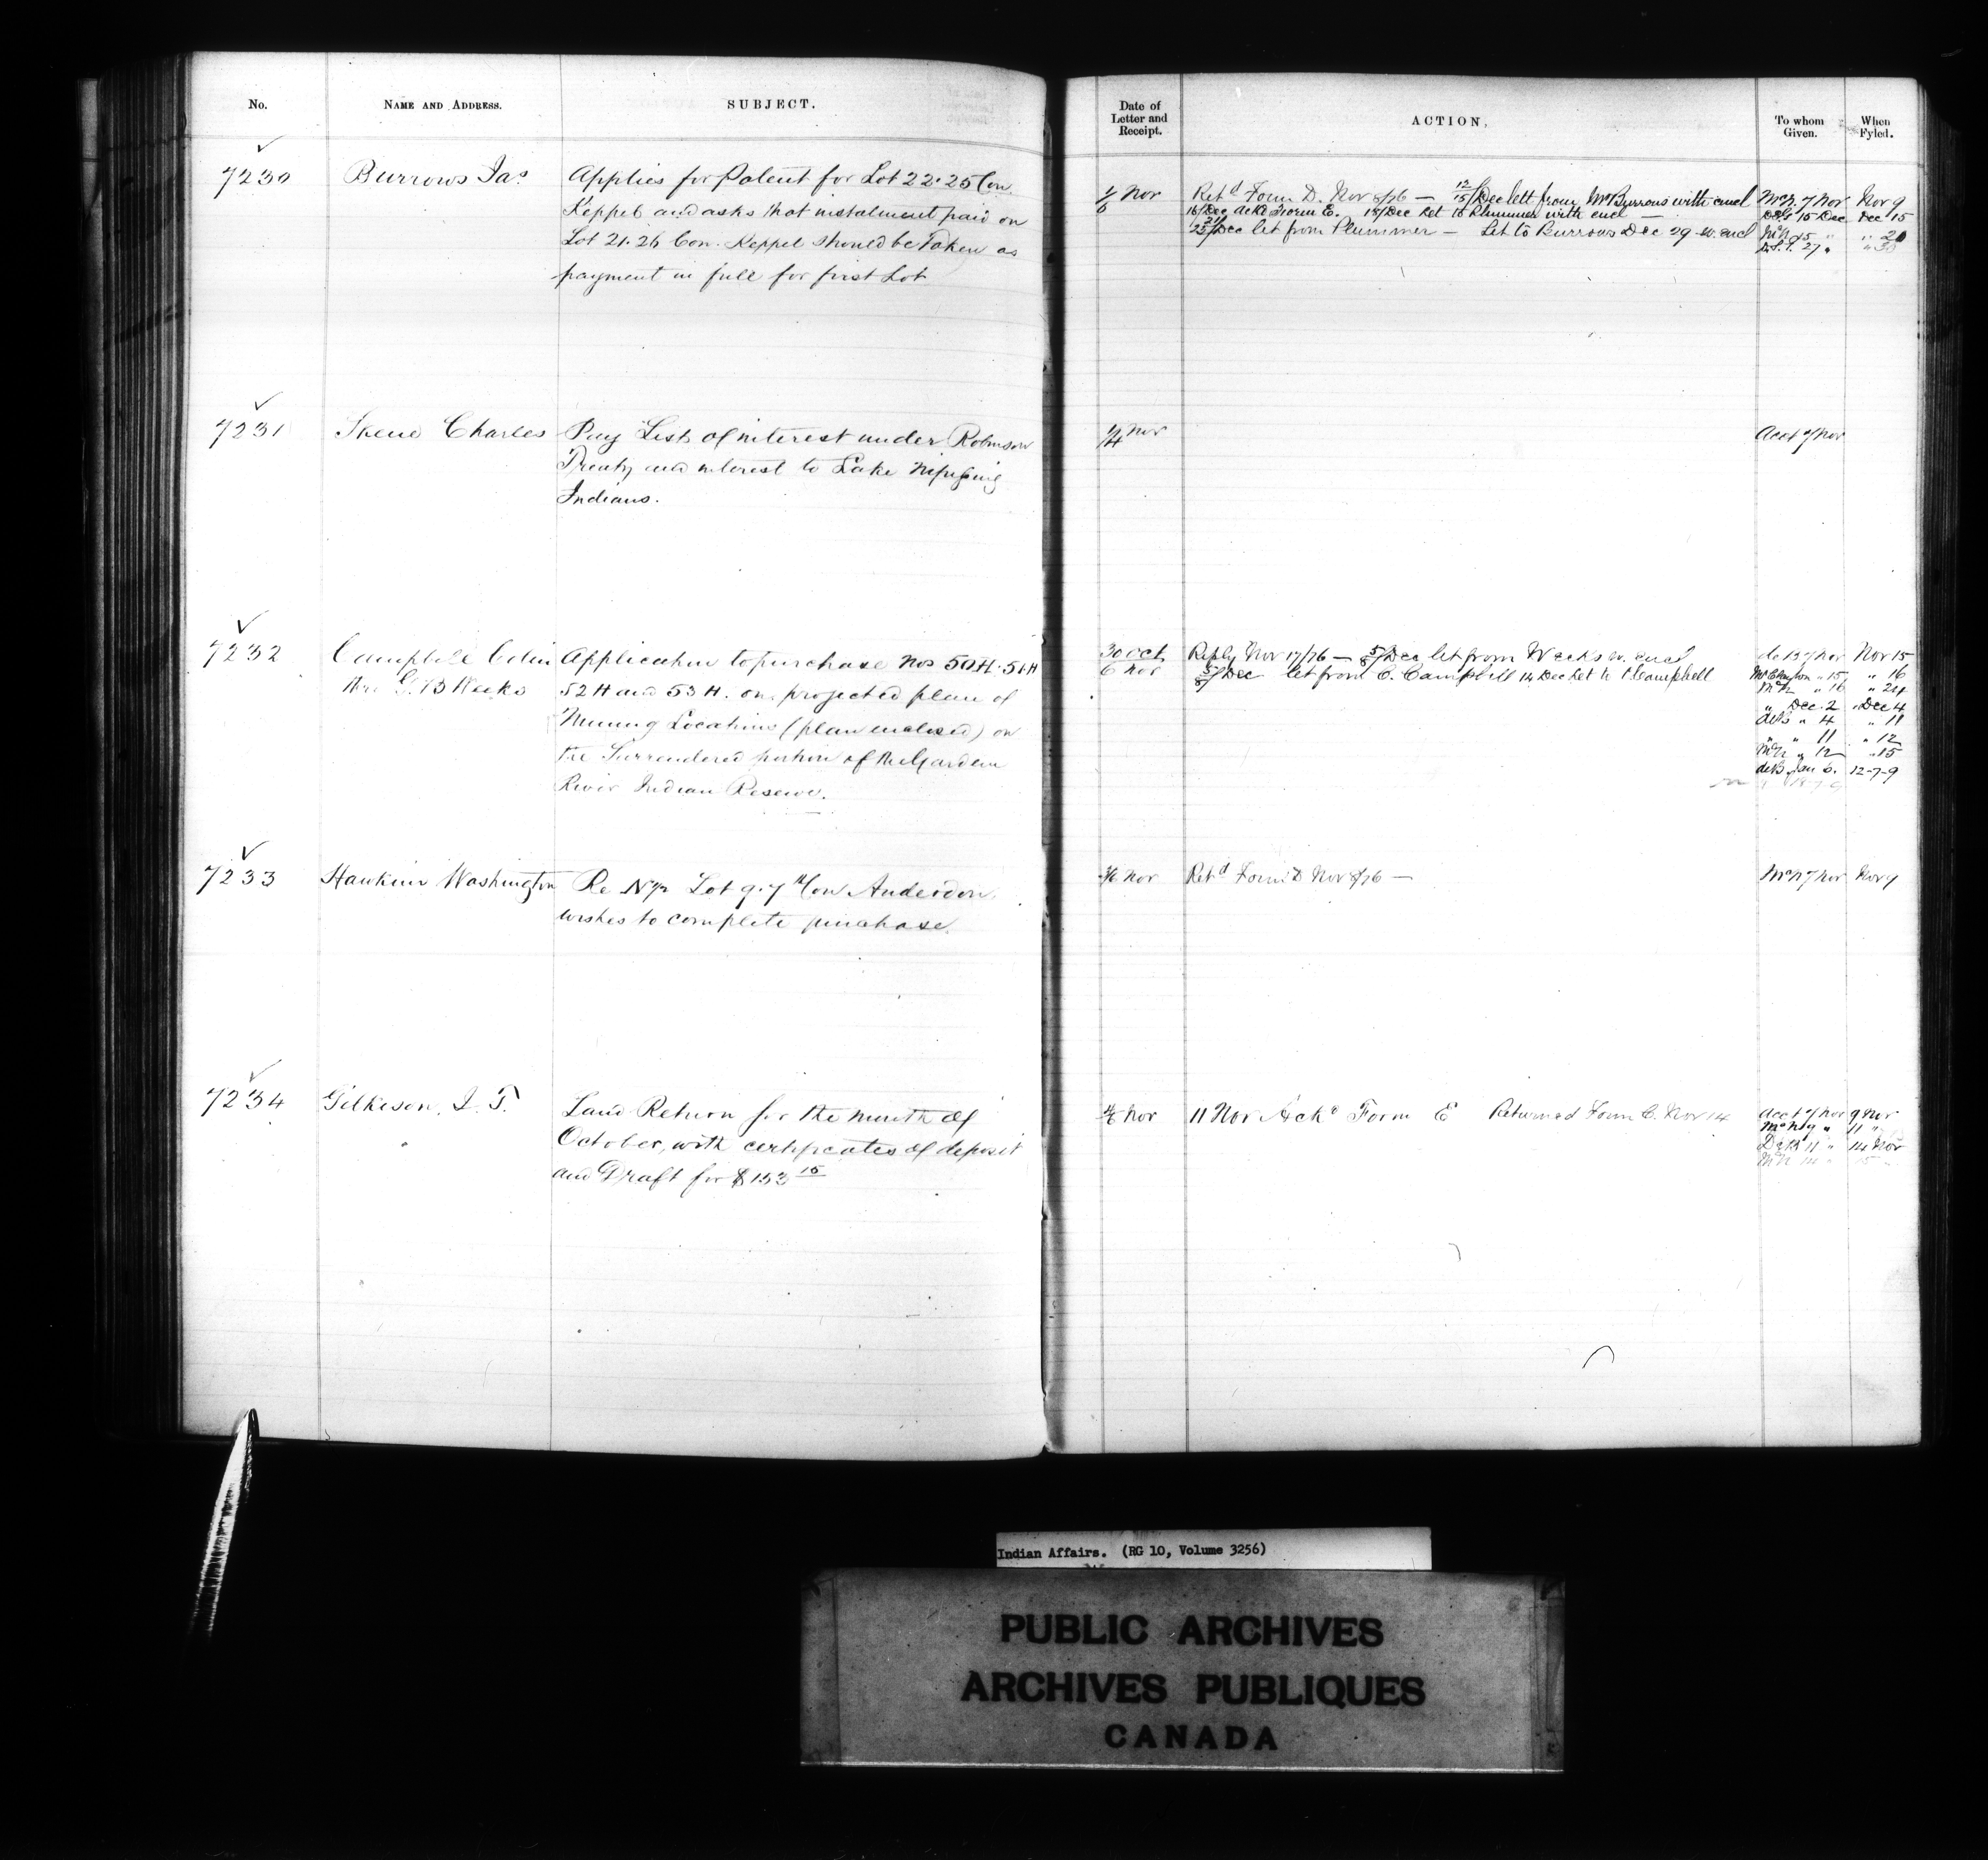 No.
NAME AND ADDRESS.
SUBJECT.
Date of
Letter and
Receipt.
ACTION.
To whom
Given.
When
Fyled.
7230
Burrows Jas
Applies for Patent for Lot 22. 25 Con.
Keppel and asks that instalment paid on
Lot 21. 26 Con. Keppel should be taken as
payment in full for first Lot
1/6 Nov
Retd Form D. Nov 8/76 — 12/15/Dec lett from Mr Burrows with encl
16/Dec Ackd Form E. 18/Dec Let to Plummer with encl —
21/23/Dec let from Plummer — Let to Burrows Dec 29 w. encl
McN. 7 Nov
Nov 9
15 Dec
Dec 15
McN 15 "
" 20
27 "
7231
Skene Charles
Pay Lists of interest under Robinson
Treaty and interest to Lake Nipissing
Indians.
Nov
Acct 7 Nov
7232
Campbell Colin
G. B Weeks
Application to purchase Nos 50H. 51H
52H and 53H. on projected plan of
Mining Locations (plan enclosed) on
the Surrendered portion of the Garden
River Indian Reserve.
30 Oct
6 Nov
Reply Nov 17/76 — 5/8/Dec let from Weeks w. encl
5/8/Dec let from C. Campbell 14 Dec Let to C Campbell
deB 7 Nov
Nov 15
" 15
" 16
McN " 16
" 24
" Dec. 2
" Dec 4
deB " 4
" 11
" " 11
" 12
McN " 12
" 15
deB Jan 6.
12-7-9
7233
Hawkins Washington
Re N½ Lot 9. 7th Con Anderdon.
Wishes to complete purchase.
Nov
Retd Form D Nov 8/76 —
McN 7 Nov
Nov 9
7234
Gilkison, J. T.
Land Return for the month of
October, with certificates of deposit
and Draft for $153 15
Nov
11 Nov Ackd Form E Returned Form C. Nov 14
Acct 7 Nov
9 Nov
McN 9 "
11 "
11 "
14 Nov
McN 14 "
15 "
Indian Affairs. (RG 10, Volume 3256)
PUBLIC ARCHIVES
ARCHIVES PUBLIQUES
CANADA